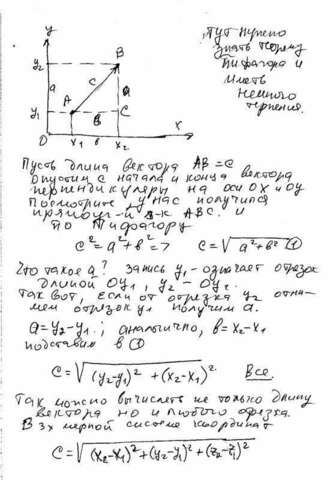 y
Тут нужно
знать теорему
Пифагора и
иметь
немного
терпения.
y₂
B
c
a
a
y₁
A
C
в
0
x₁
x₂
x
Пусть длина вектора AB = c
опустим с начала и конца вектора
перпендикуляры на оси OX и OY
Посмотрите, у нас получился
прямоуг-й з-к ABC. и
по Пифагору
c² = a² + в² => c = √(a² + в²) ①
Что такое a? запись y₁ - означает отрезок
длиной 0y₁, y₂ - 0y₂.
Так вот, если от отрезка y₂ отни-
мем отрезок y₁ получим a.
a = y₂-y₁.; аналогично, в = x₂-x₁
подставим в ①
c = √((y₂-y₁)² + (x₂-x₁)²) Все.
Так можно вычислеть не только длину
вектора но и любого отрезка.
В 3х мерной системе координат
c = √((x₂-x₁)² + (y₂-y₁)² + (z₂-z₁)²)